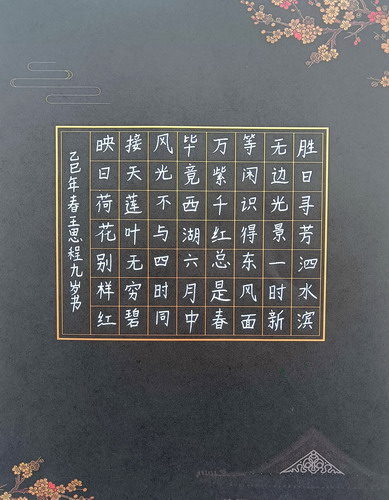 胜日寻芳泗水滨
无边光景一时新
等闲识得东风面
万紫千红总是春
毕竟西湖六月中
风光不与四时同
接天莲叶无穷碧
映日荷花别样红
乙巳年春王思程九岁书